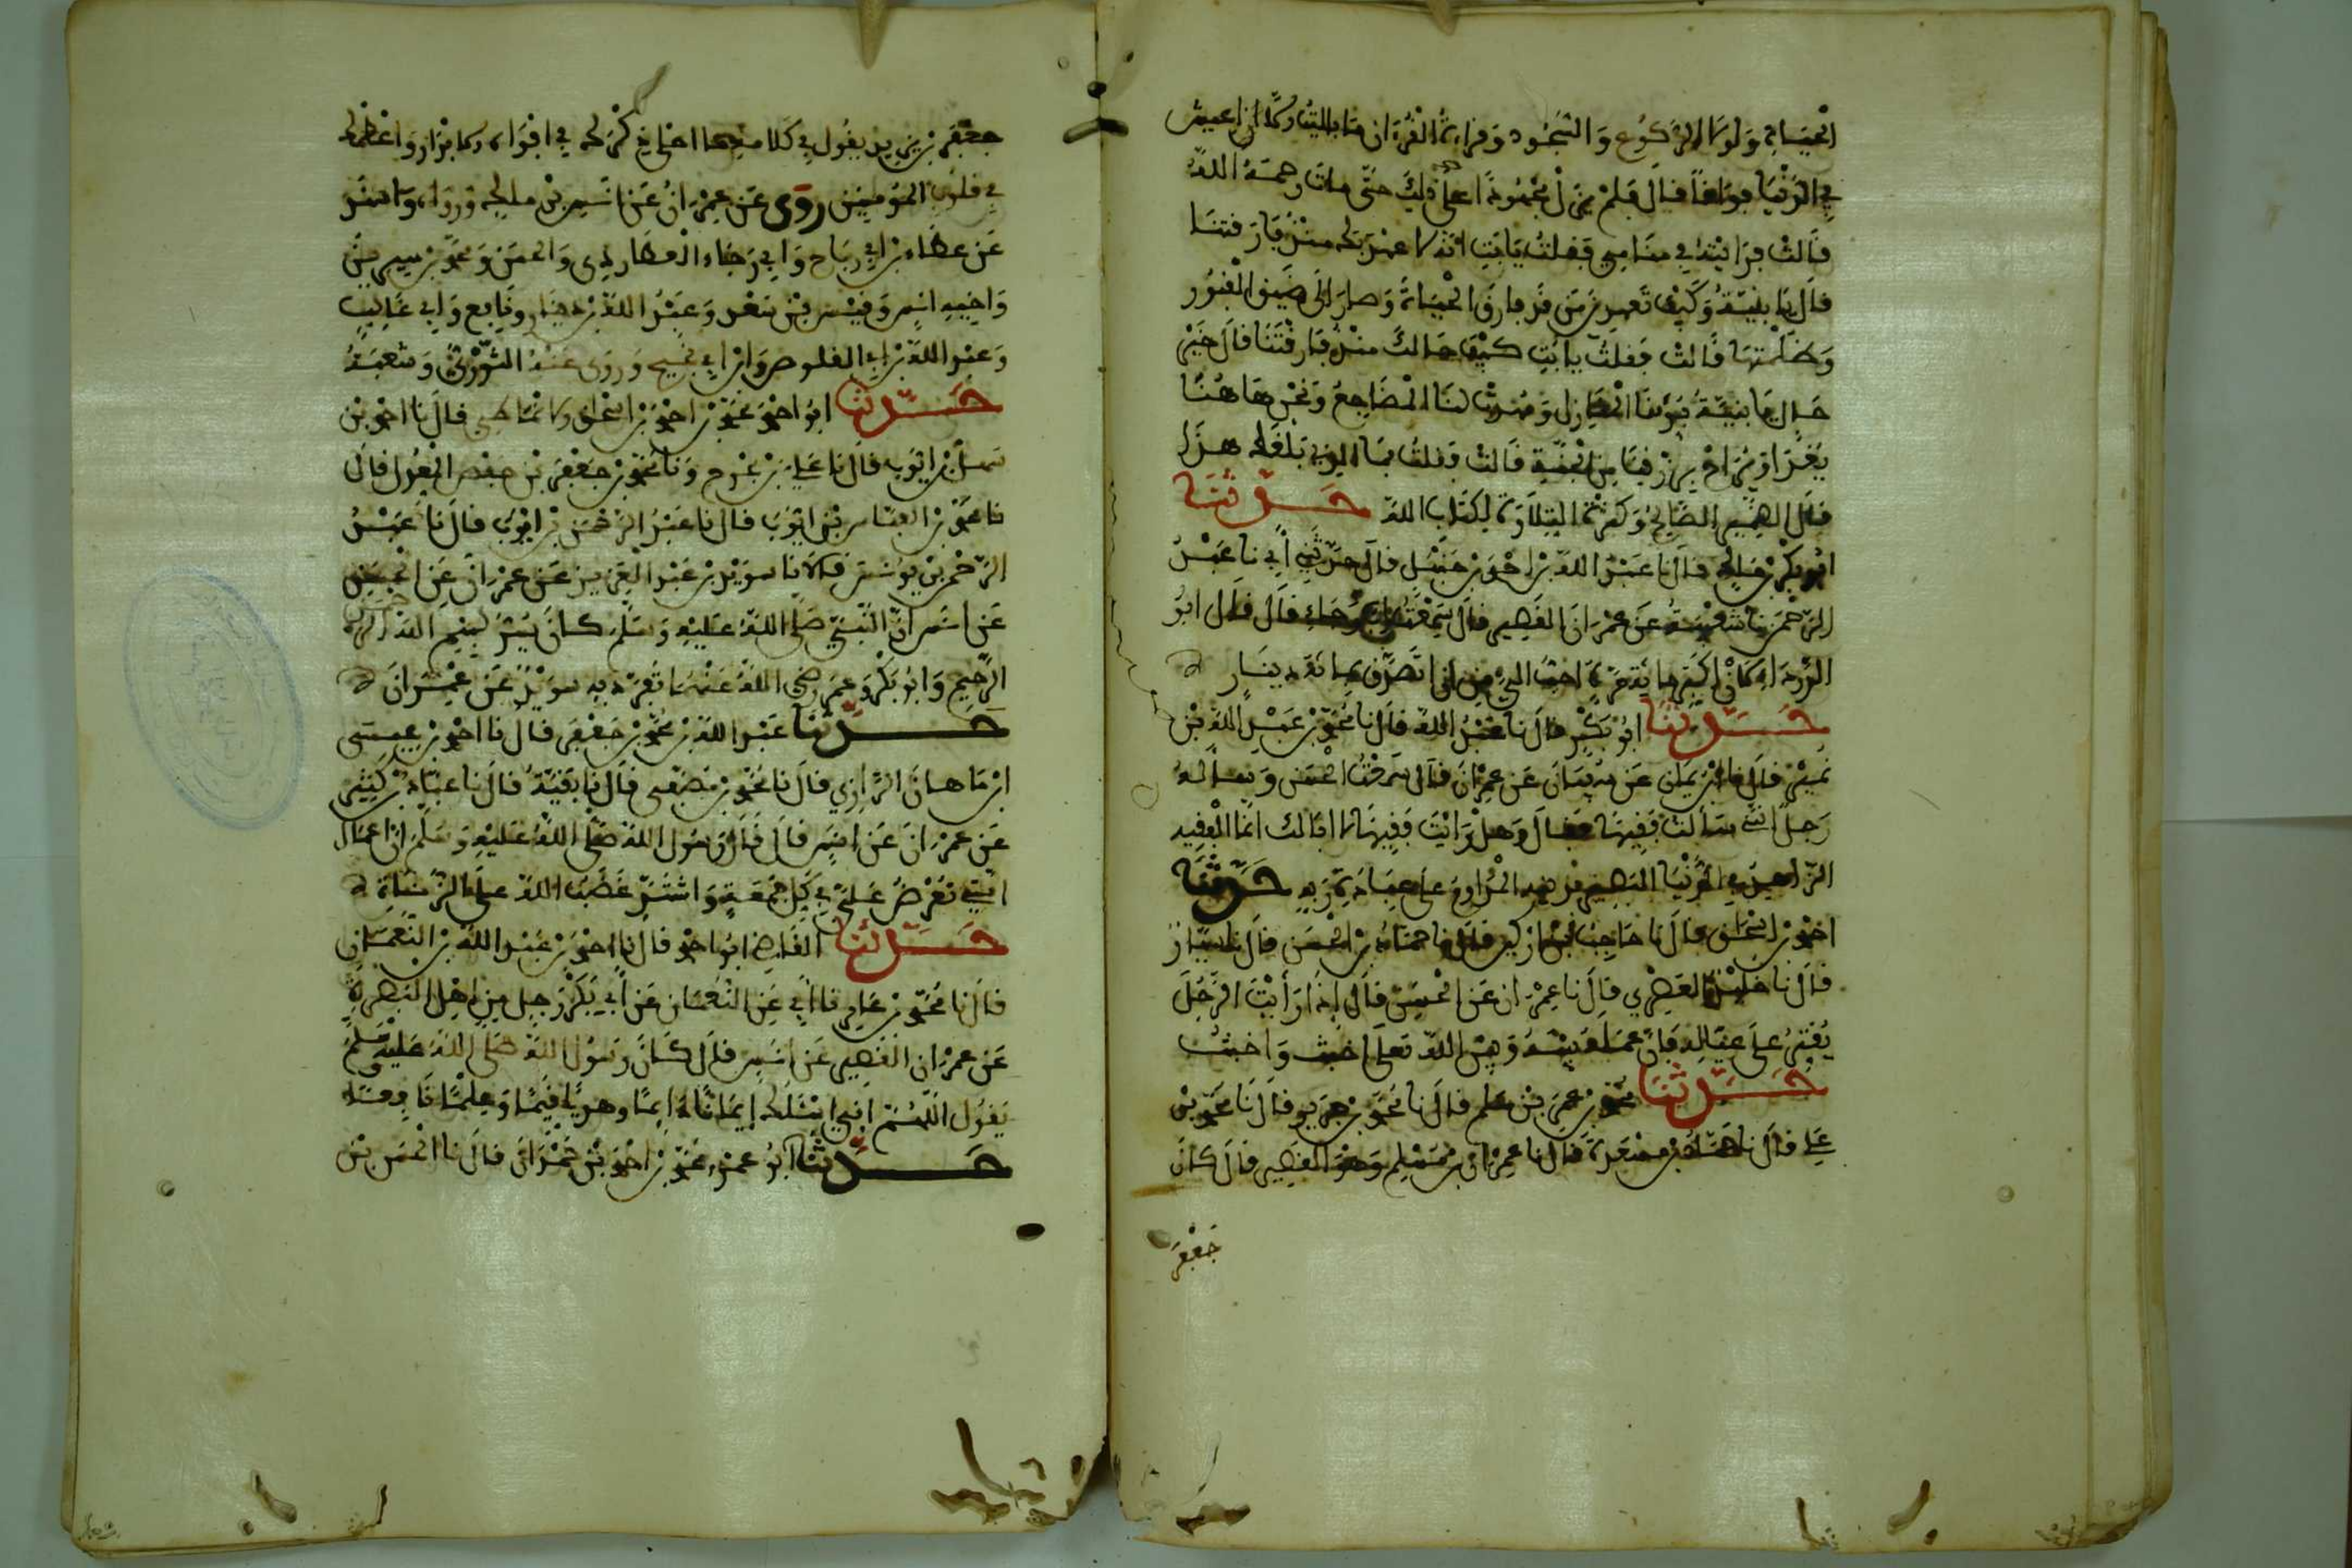 الحياة ولولا الركوع والسجود وقراءة القرءان ما باليت ان لا اعيش
في الدنيا فواقا قال فلم يزل مجهودا على ذلك حتى مات رحمة الله
قالت فرايته في منامي فقلت يا ابت انه لا عهد لي بك منذ فارقتنا
قال يا بنية وكيف تعهدين من قد فارق الحياة وصار الى ضيق القبور
وظلمتها قالت فقلت يا ابت كيف حالك منذ فارقتنا قال خير
حال يا بنية بوئنا المنازل ومهدت لنا المضاجع ونحن هاهنا
يغدا ويراح برزقنا من الجنة قالت فقلت فما الذي بلغك هذا
قال الضمير الصالح وكثرة التلاوة لكتاب الله حدثنا
ابو بكر بن مالك قال نا عبد الله بن احمد بن حنبل قال حدثني ابي نا عبد
الرحمن نا شعبة عن عمران القصير قال سمعت ابا رجاء قال قال ابو
الدرداء لان اكبر مائة مرة احب الي من ان اتصدق بمائة دينار
حدثنا ابو بكر قال نا عبد الله قال نا محمد بن عبد الله بن
نمير قال نا ابن يمان عن سفيان عن عمران قال سمعت الحسن وساله
رجل اني سالت فقيها فقال وهل رايت فقيها لا ابا لك انما الفقيه
الزاهد في الدنيا البصير في دينه المداوم على عبادة ربه حدثنا
احمد بن اسحاق قال نا حاجب بن اركين قال نا حماد بن الحسن قال نا سيار
قال نا خليد العصري قال نا عمران عن الحسن قال اذا رايت الرجل
يقتر على عياله فان عمله بينه وبين الله تعلى اخبث واخبث
حدثنا محمد بن عمر بن سلم قال نا محمد بن جرير قال نا محمد بن
علي قال نا حماد بن مسعدة قال نا عمران بن مسلم وهو القصير قال كان
جعفر
جعفر بن زيد يقول في كلامه ما احلى ذكر الله في افواه الابرار واعظمه
في قلوب المومنين روى عن عمران عن انس بن ملك ورواه واسند
عن عطاء بن ابي رباح وابي رجاء العطاردي والحسن ومحمد بن سيرين
واخيه انس وقيس بن سعد وعبد الله بن دينار ونافع وابي غالب
وعبد الله بن ابي القلوص وابن ابي نجيح وروى عنه الثوري وشعبة
حدثنا ابو احمد محمد بن احمد بن اسحاق الانماطي قال نا احمد بن
سهل بن ايوب قال نا علي بن بحر ح ونا محمد بن جعفر بن حفص المعدل قال
نا محمد بن العباس بن ايوب قال نا عبد الرحمن بن ايوب قال نا عبد
الرحمن بن يونس قالا نا سويد بن عبد العزيز عن عمران عن الحسن
عن انس ان النبي صلى الله عليه وسلم كان يسر ببسم الله الرحمن
الرحيم وابو بكر وعمر رضي الله عنهما تفرد به سويد عن عمران
حدثنا عبد الله بن محمد بن جعفر قال نا احمد بن عيسى
ابن ماهان الرازي قال نا محمد بن مصفى قال نا بقية قال نا عباد بن كثير
عن عمران عن انس قال قال رسول الله صلى الله عليه وسلم ان اعمال
امتي تعرض علي في كل جمعة واشتد غضب الله على الزناة
حدثنا القاضي ابو احمد قال نا احمد بن عبد الله بن النعمان
قال نا محمد بن عامر نا ابي عن النعمان عن ابي بكر رجل من اهل البصرة
عن عمران القصير عن انس قال كان رسول الله صلى الله عليه وسلم
يقول اللهم اني اسئلك ايمانا دائما وهديا قيما وعلما نافعا
حدثنا ابو عمرو محمد بن احمد بن حمدان قال نا الحسن بن